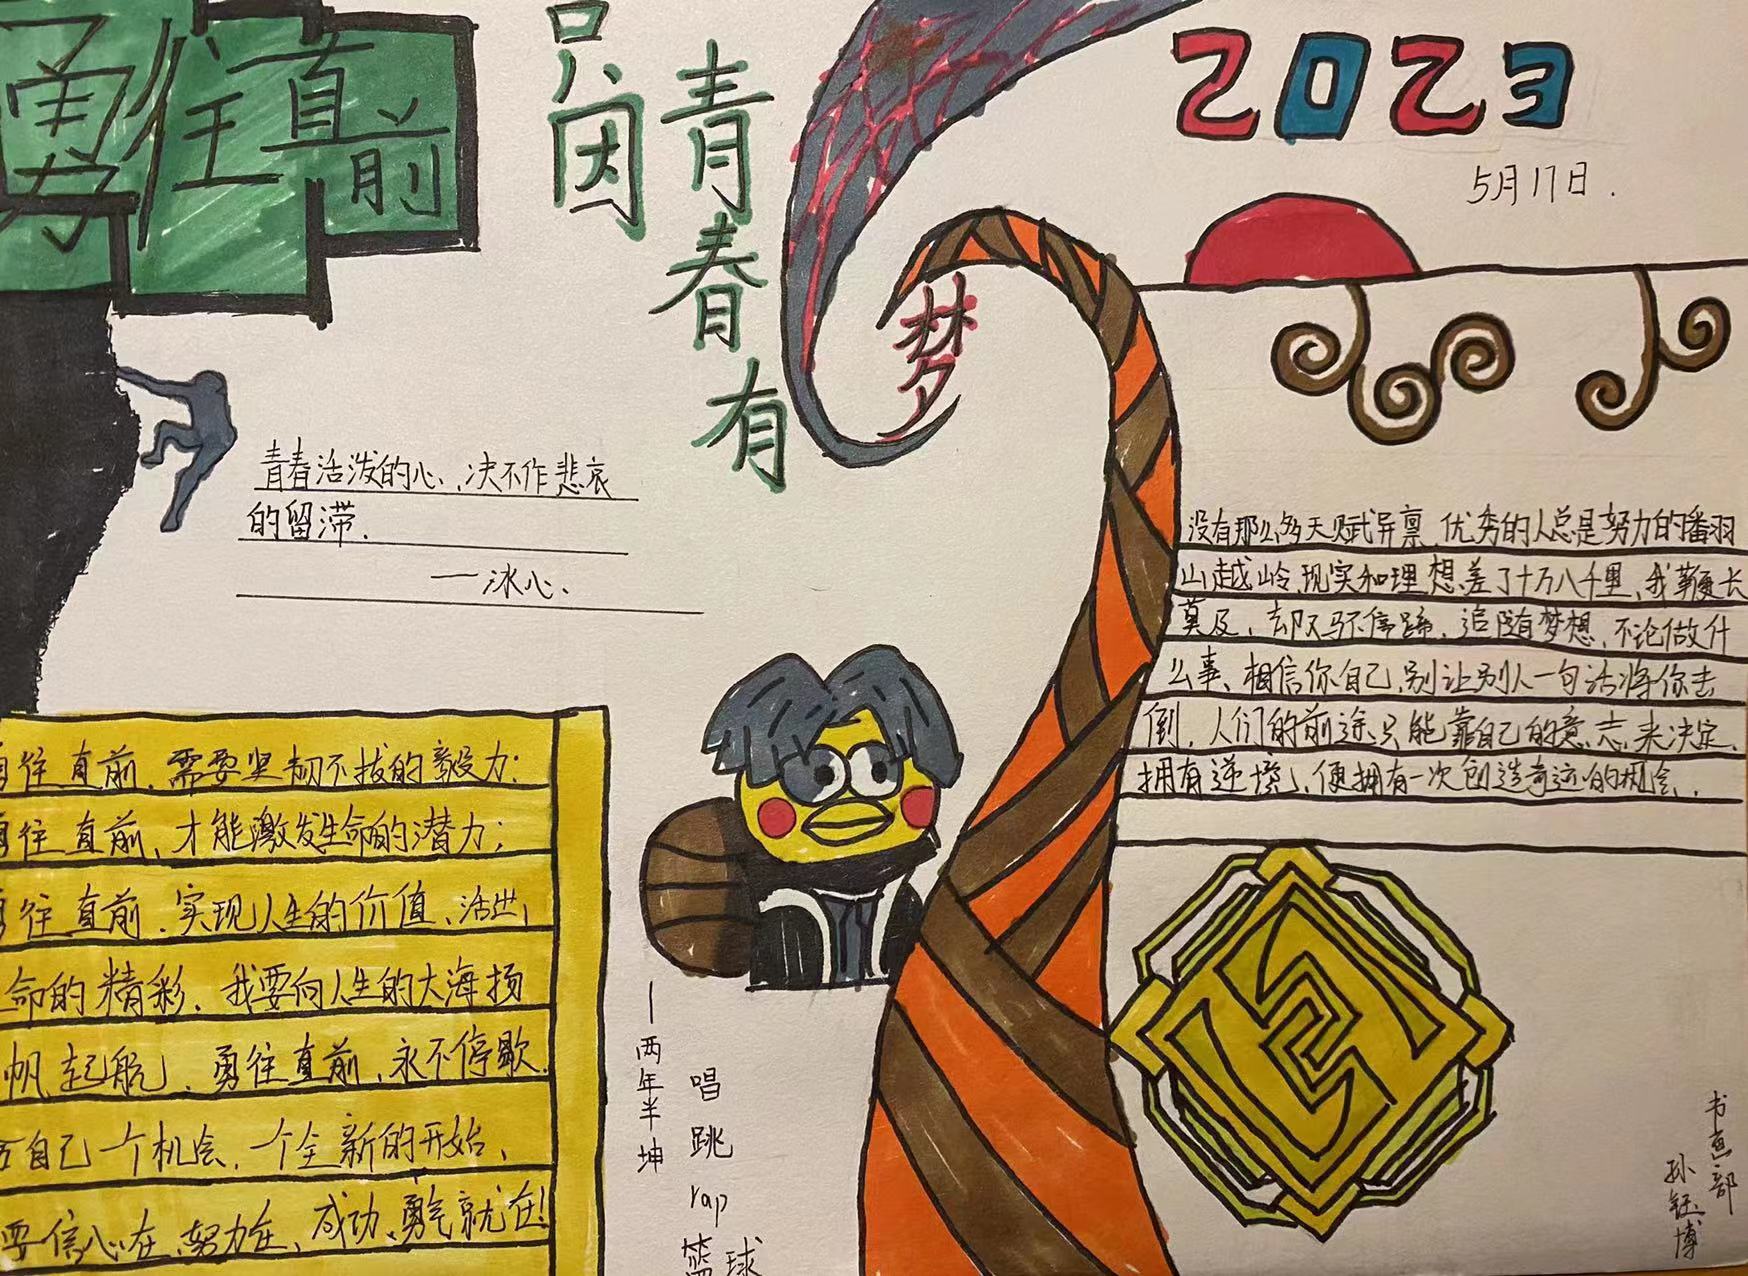 勇往直前
只因
青春有
梦
2023
5月17日.
青春活泼的心,决不作悲哀
的留滞.
——冰心.
没有那么多天赋异禀,优秀的人总是努力的翻
山越岭,现实和理想差了十万八千里,我鞭长
莫及,却不停蹄,追随梦想,不论做什
么事、相信你自己,别让别人一句话将你击
倒,人们的前途只能靠自己的意志来决定,
拥有逆境,便拥有一次创造奇迹的机会.
勇往直前,需要坚韧不拔的毅力;
勇往直前,才能激发生命的潜力;
勇往直前,实现人生的价值、活出
命的精彩.我要向人生的大海扬
帆起航,勇往直前,永不停歇.
自己一个机会,一个全新的开始,
要信心在、努力在、成功、勇气就在!
—两年半坤
唱跳rap篮球
书画部
孙钰博